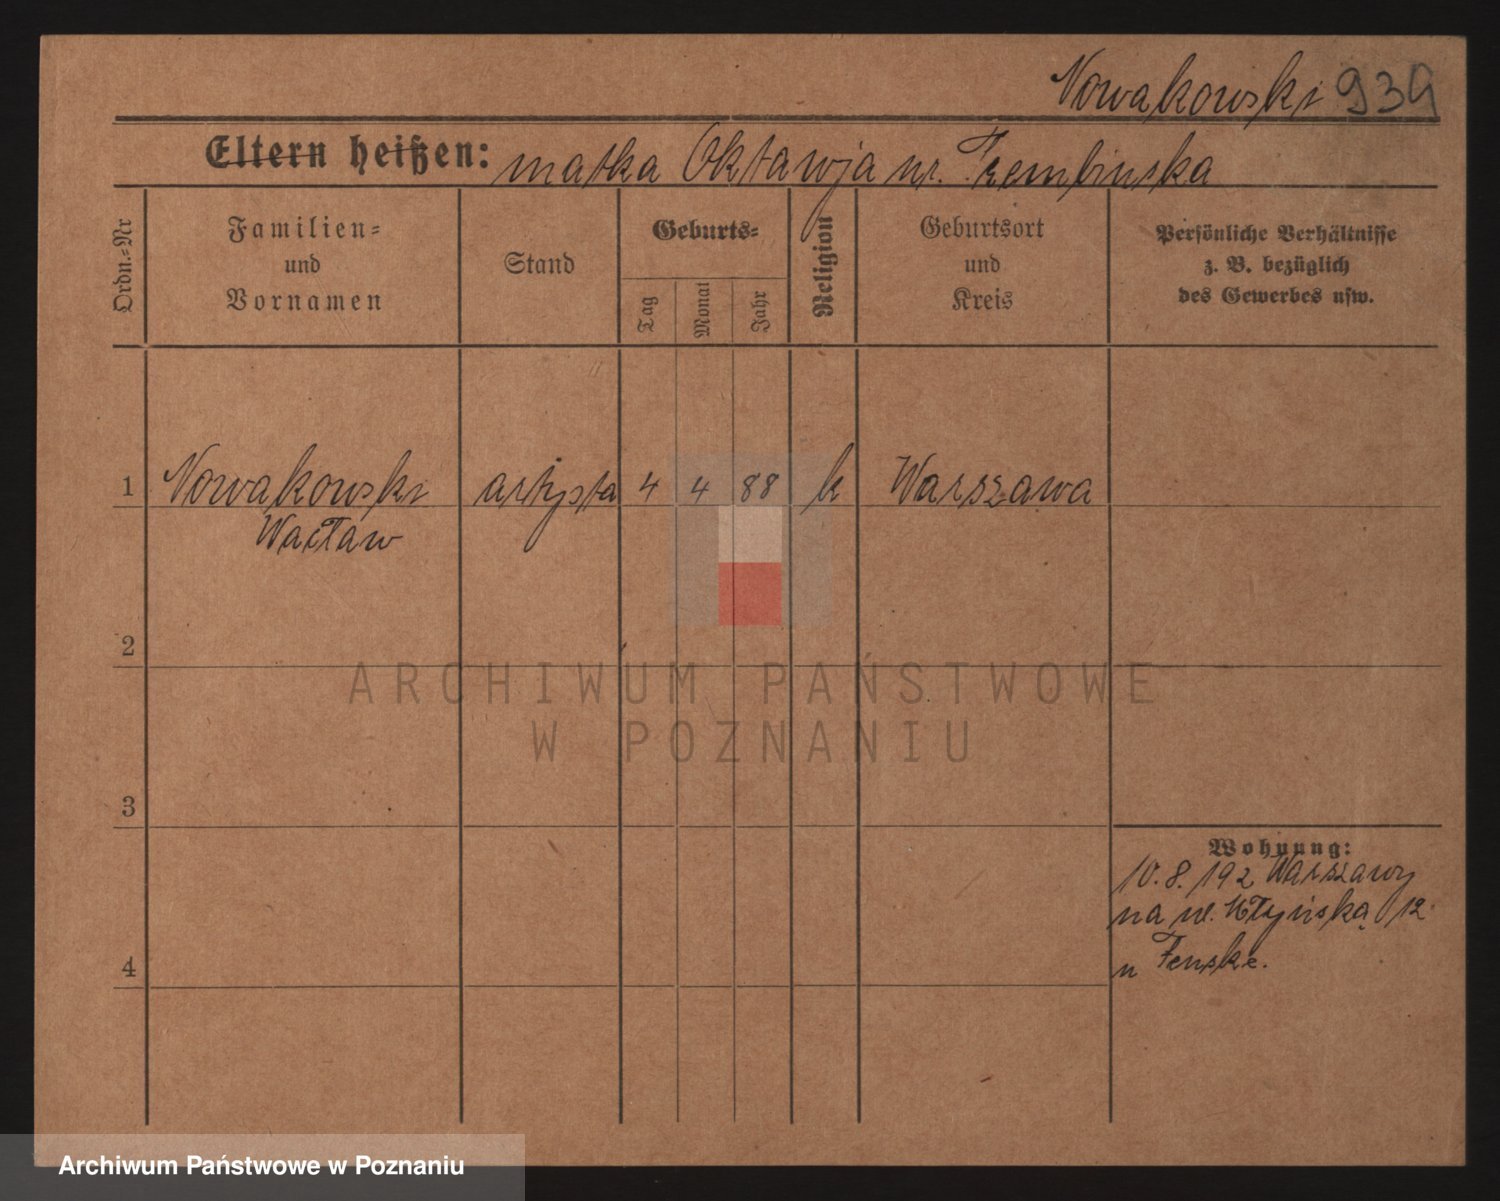 Nowakowski 939
Eltern heißen: matka Oktawja ur. Trembinska
Ordn.-Nr
Familien-
und
Vornamen
Stand
Geburts-
Tag
Monat
Jahr
Religion
Geburtsort
und
Kreis
Persönliche Verhältnisse
z. B. bezüglich
des Gewerbes usw.
1 Nowakowski artysta 4 4 88 k Warszawa
Wacław
2
ARCHIWUM PAŃSTWOWE
W POZNANIU
3
Wohnung:
10.8.192 Warszawy
na ul. 12
u Fenske.
4
Archiwum Państwowe w Poznaniu